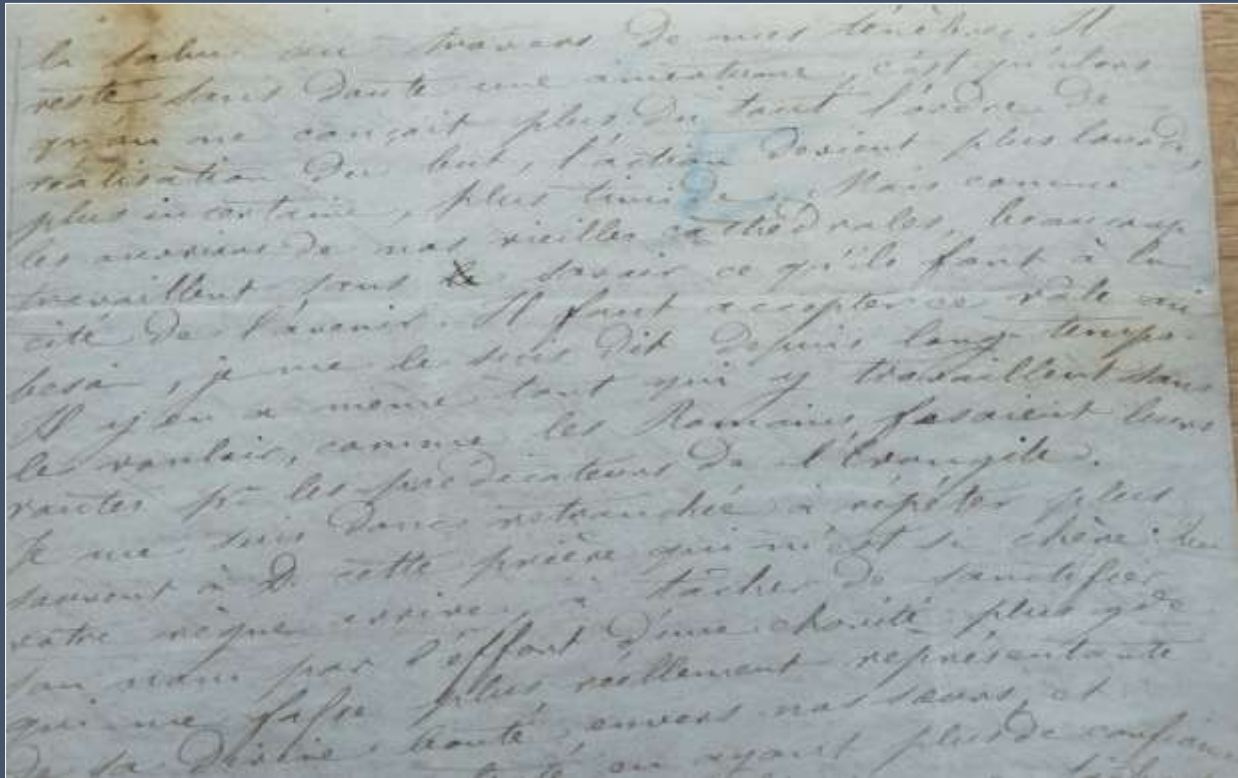 la salue au travers de mes ténèbres. Il
reste sans doute une amertume, c'est qu'alors
qu'on ne conçoit plus du tout l'ordre de
réalisation du but, l'action devient plus lourde,
plus incertaine, plus timide. Mais comme
les ouvriers de nos vieilles cathédrales, beaucoup
travaillent sans savoir ce qu'ils font à la
cité de l'avenir. Il faut accepter ce rôle
, je me le suis dit depuis long-temps.
Il y en a même tant qui y travaillent sans
le vouloir, comme les Romains faisaient leurs
routes pr les prédicateurs de l'Evangile.
Je me suis donc retranchée à répéter plus
souvent à D. cette prière qui m'est si chère: que
votre règne arrive, à tâcher de sanctifier
son nom par l'effort d'une charité plus gde
qui me fasse plus réellement représentante
de sa divine bonté envers nos sœurs, et
en ayant plus de confiance